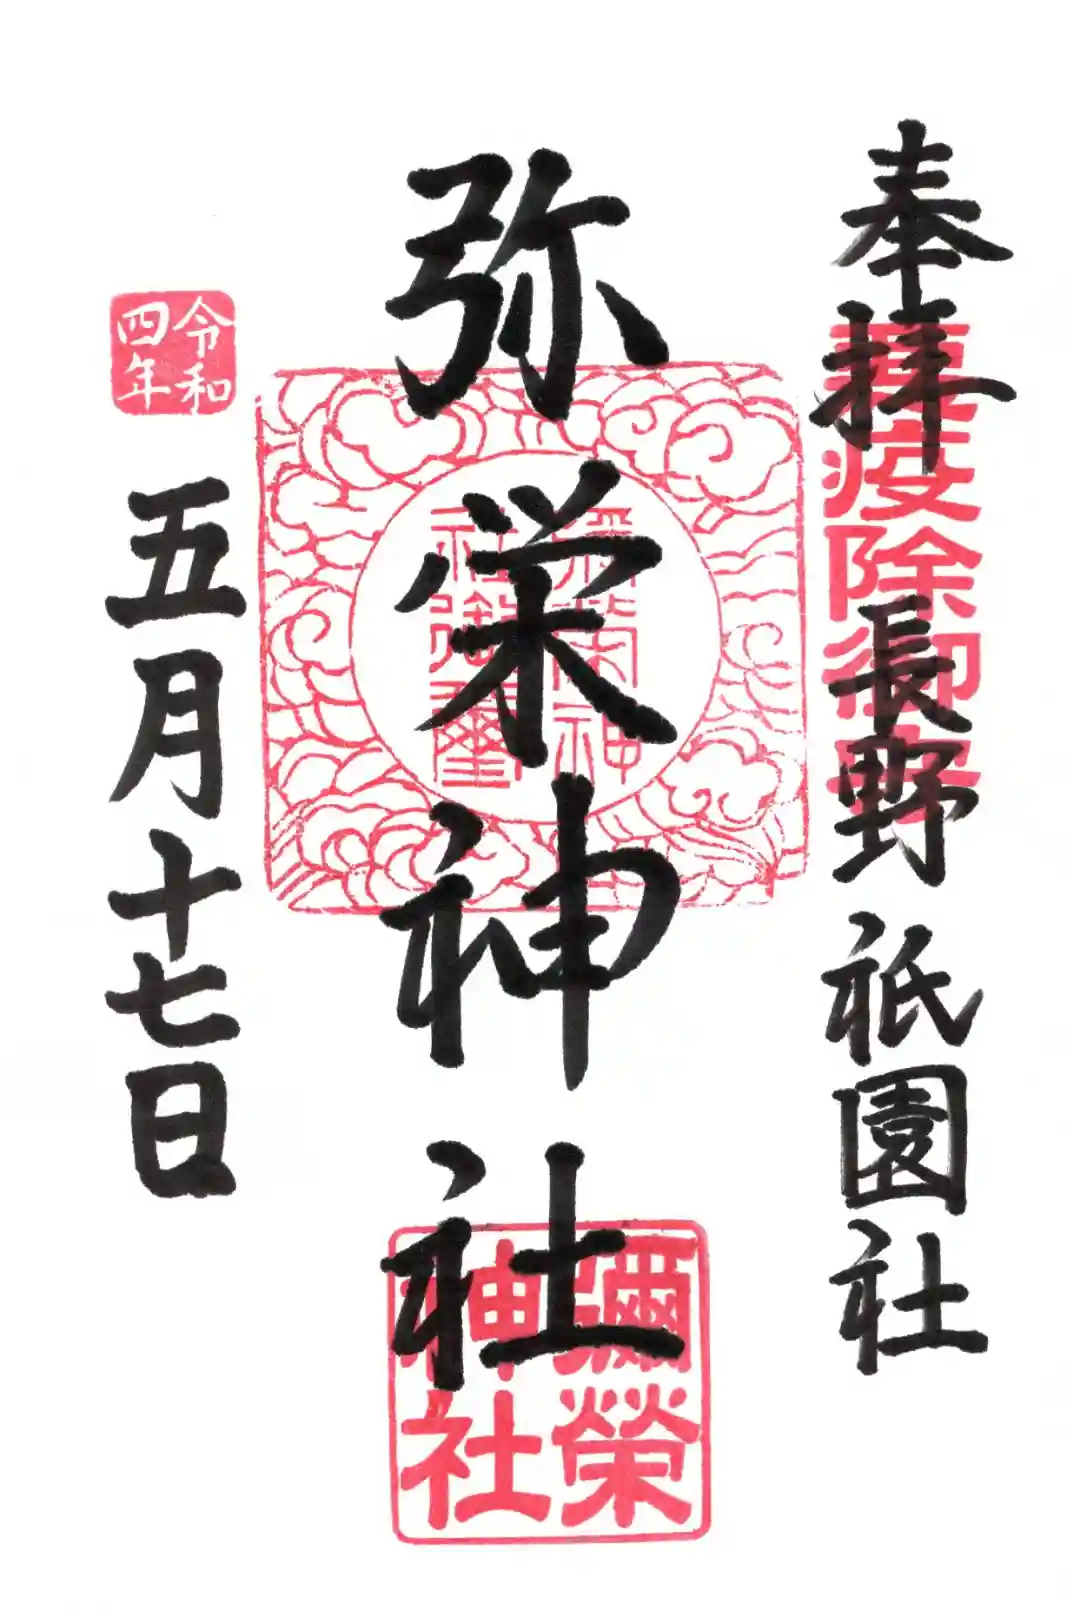 奉拝
長野祇園社
疫除御
弥栄神社
彌榮
神社
令和
四年
五月十七日